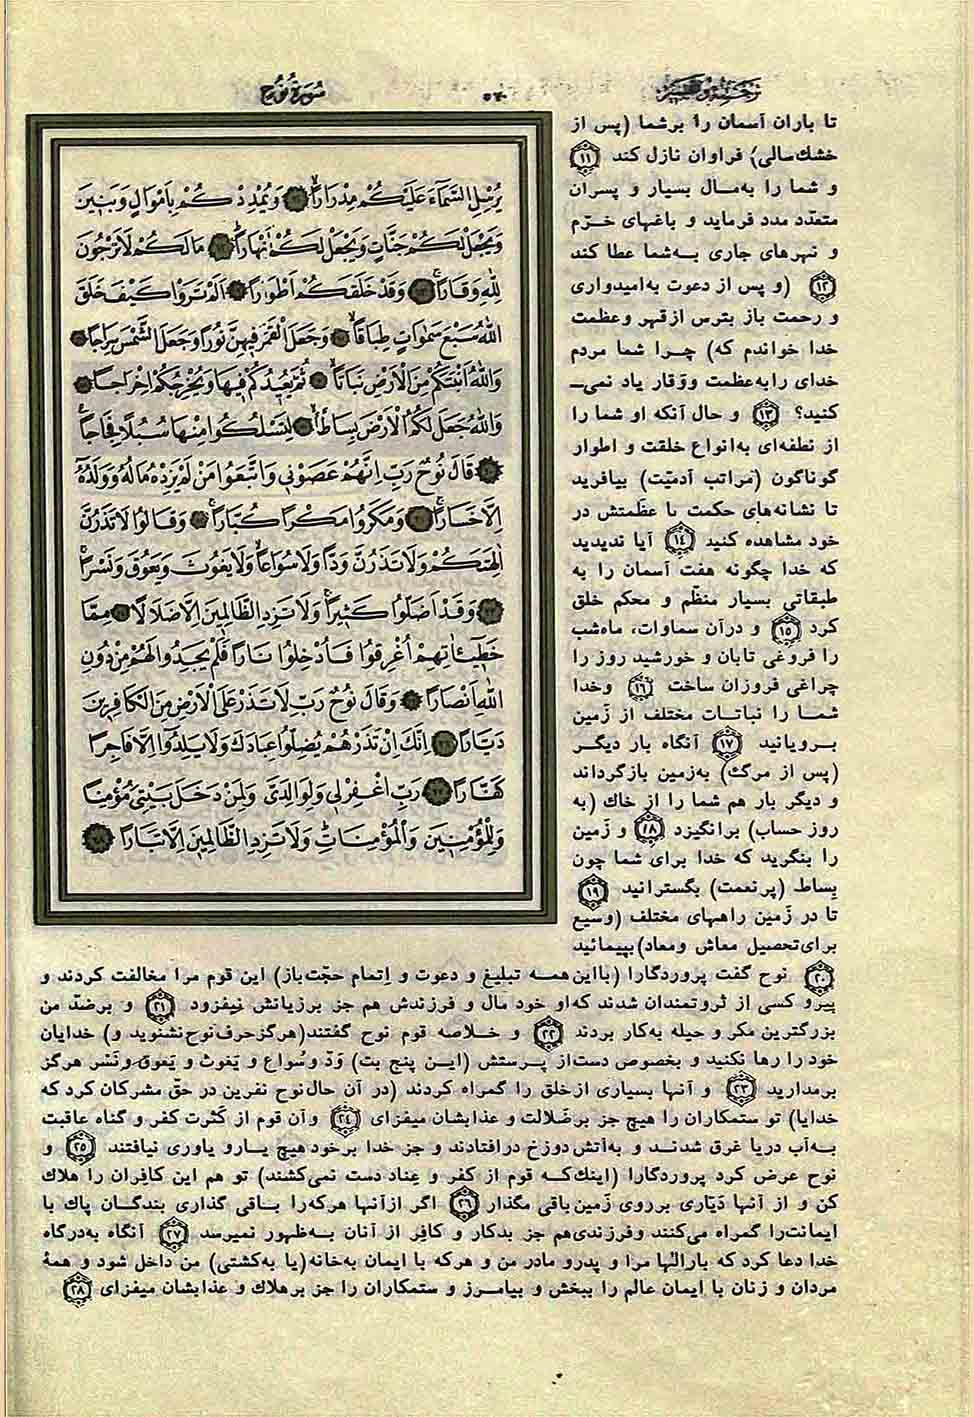 ترجمه و تفسیر
۵۷۰
سُورَةُ نُوح
يُرْسِلِ السَّمَآءَ عَلَيْكُمْ مِدْرَاراً ﴿۱۱﴾ وَيُمْدِدْكُمْ بِاَمْوَالٍ وَبَنِينَ
وَيَجْعَلْ لَكُمْ جَنَّاتٍ وَيَجْعَلْ لَكُمْ اَنْهَاراً ﴿۱۲﴾ مَالَكُمْ لَاتَرْجُونَ
لِلّٰهِ وَقَاراً ﴿۱۳﴾ وَقَدْ خَلَقَكُمْ اَطْوَاراً ﴿۱۴﴾ اَلَمْ تَرَوْا كَيْفَ خَلَقَ
اللّٰهُ سَبْعَ سَمٰوَاتٍ طِبَاقاً ﴿۱۵﴾ وَجَعَلَ الْقَمَرَ فِيهِنَّ نُوراً وَجَعَلَ الشَّمْسَ سِرَاجاً ﴿۱۶﴾
وَاللّٰهُ اَنْبَتَكُمْ مِنَ الْاَرْضِ نَبَاتاً ﴿۱۷﴾ ثُمَّ يُعِيدُكُمْ فِيهَا وَيُخْرِجُكُمْ اِخْرَاجاً ﴿۱۸﴾
وَاللّٰهُ جَعَلَ لَكُمُ الْاَرْضَ بِسَاطاً ﴿۱۹﴾ لِتَسْلُكُوا مِنْهَا سُبُلاً فِجَاجاً
﴿۲۰﴾ قَالَ نُوحٌ رَبِّ اِنَّهُمْ عَصَوْنِي وَاتَّبَعُوا مَنْ لَمْ يَزِدْهُ مَالُهُ وَوَلَدُهُ
اِلَّا خَسَاراً ﴿۲۱﴾ وَمَكَرُوا مَكْراً كُبَّاراً ﴿۲۲﴾ وَقَالُوا لَا تَذَرُنَّ
اٰلِهَتَكُمْ وَلَا تَذَرُنَّ وَدّاً وَلَا سُوَاعاً وَلَا يَغُوثَ وَيَعُوقَ وَنَسْراً
﴿۲۳﴾ وَقَدْ اَضَلُّوا كَثِيراً وَلَا تَزِدِ الظَّالِمِينَ اِلَّا ضَلَالاً ﴿۲۴﴾ مِمَّا
خَطِيٓئَاتِهِمْ اُغْرِقُوا فَاُدْخِلُوا نَاراً فَلَمْ يَجِدُوا لَهُمْ مِنْ دُونِ
اللّٰهِ اَنْصَاراً ﴿۲۵﴾ وَقَالَ نُوحٌ رَبِّ لَا تَذَرْ عَلَى الْاَرْضِ مِنَ الْكَافِرِينَ
دَيَّاراً ﴿۲۶﴾ اِنَّكَ اِنْ تَذَرْهُمْ يُضِلُّوا عِبَادَكَ وَلَا يَلِدُوٓا اِلَّا فَاجِراً
كَفَّاراً ﴿۲۷﴾ رَبِّ اغْفِرْلِي وَلِوَالِدَيَّ وَلِمَنْ دَخَلَ بَيْتِيَ مُؤْمِناً
وَلِلْمُؤْمِنِينَ وَالْمُؤْمِنَاتِ وَلَا تَزِدِ الظَّالِمِينَ اِلَّا تَبَاراً ﴿۲۸﴾
تا باران آسمان را برشما (پس از
خشك‌سالی) فراوان نازل کند ﴿۱۱﴾
و شما را به‌مـال بسیار و پسران
متعدّد مدد فرماید و باغهای خـرّم
و نهرهای جاری بـه‌شما عطا کند
﴿۱۲﴾ (و پس از دعوت به‌امیدواری
و رحمت باز بترس ازقهر وعظمت
خدا خواندم که) چـرا شما مردم
خدای را به‌عظمت ووقار یاد نمی‌ـ
کنید؟ ﴿۱۳﴾ و حال آنکه او شما را
از نطفه‌ای به‌انواع خلقت و اطوار
گوناگون (مراتب آدمیّت) بیافرید
تا نشانه‌های حکمت با عظمتش در
خود مشاهده کنید ﴿۱۴﴾ آیا ندیدید
که خدا چگونه هفت آسمان را به
طبقاتی بسیار منظّم و محکم خلق
کرد ﴿۱۵﴾ و درآن سماوات، ماه‌شب
را فروغی تابان و خورشید روز را
چراغی فروزان ساخت ﴿۱۶﴾ وخدا
شمـا را نباتـات مختلف از زَمین
بـرویانید ﴿۱۷﴾ آنگاه بار دیگـر
(پس از مرگ) به‌زمین بازگرداند
و دیگر بار هم شما را از خاك (به
روز حساب) برانگیزد ﴿۱۸﴾ و زَمین
را بنگرید که خدا برای شما چون
بِساط (پرنعمت) بگسترانید ﴿۱۹﴾
تا در زَمین راههای مختلف (وسیع
برای‌تحصیل معاش ومعاد)بپیمائید
﴿۲۰﴾ نوح گفت پروردگارا (بااین‌همه تبلیغ و دعوت و اِتمام حجّت‌باز) این قوم مرا مخالفت کردند و
پیرو کسی از ثروتمندان شدند که‌او خود مال و فرزندش هم جز برزیانش نیفزود ﴿۲۱﴾ و برضدّ من
بزرگترین مکر و حیله به‌کار بردند ﴿۲۲﴾ و خـلاصه قوم نوح گفتند(هرگزحرف‌نوح‌نشنوید و) خدایان
خود را رها نکنید و بخصوص دست‌از پـرستش (ایـن پنج بت) وَدّ و سُواع و یَغوث و یَعوق و نَسْر هرگز
برمدارید ﴿۲۳﴾ و آنها بسیاری ازخلق را گمراه کردند (در آن حال‌نوح نفرین در حقّ مشرکان کرد که
خدایا) تو ستمکاران را هیچ جز برضَلالت و عذابشان میفزای ﴿۲۴﴾ وآن قوم از کَثرت کفر و گناه عاقبت
به‌آب دریا غرق شدنـد و به‌آتش دوزخ درافتادند و جز خدا برخود هیچ یـارو یاوری نیافتند ﴿۲۵﴾ و
نوح عرض کرد پروردگارا (اینك‌کـه قوم از کفر و عِناد دست نمی‌کشند) تو هم این کافِران را هلاك
کن و از آنها دَیّاری برروی زَمین‌باقی مگذار ﴿۲۶﴾ اگر ازآنها هرکه‌را بـاقی گذاری بندگـان پاك با
ایمانت‌را گمراه می‌کنند وفرزندی‌هم جز بدکار و کافِر از آنان بـه‌ظهور نمیرسد ﴿۲۷﴾ آنگاه به‌درگاه
خدا دعا کرد که بارالٰها مرا و پدرو مادر من و هرکه با ایمان به‌خانه(یا به‌کشتی) من داخل شود و همهٔ
مردان و زنان با ایمان عالم را ببخش و بیامـرز و ستمکاران را جز برهلاك و عذابشان میفزای ﴿۲۸﴾